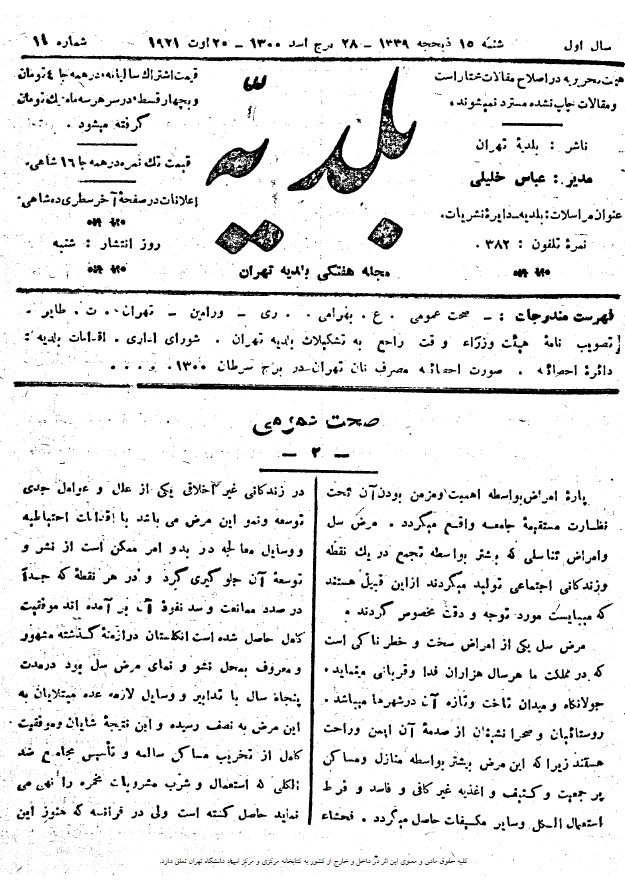 سال اول
شنبه ۱۵ ذیحجه ۱۳۳۹ - ۲۸ برج اسد ۱۳۰۰ - ۲۰ اوت ۱۹۲۱
شماره ۱۴
هیئت تحریریه در اصلاح مقالات مختار است
و مقالات چاپ نشده مسترد نمیشوند.
ناشر : بلدیهٔ تهران
مدیر : عباس خلیلی
عنوان مراسلات : بلدیه - دایرهٔ نشریات.
نمرهٔ تلفون : ۳۸۲.
بلدیّه
مجله هفتگی بلدیه تهران
قیمت اشتراك سالیانه در همه جا ٤ تومان
و بچهار قسط در سر هر سه ماه یك تومان
گرفته میشود .
قیمت تك نمره در همه جا ۱٦ شاهی.
اعلانات در صفحهٔ آخر سطری ده شاهی.
روز انتشار : شنبه
فهرست مندرجات : - صحت عمومی . ع . بهرامی . ری - ورامین - تهران . ت . طایر .
تصویب نامهٔ هیئت وزراء وقت راجع به تشکیلات بلدیه تهران . شورای اداری . اقدامات بلدیه :
دائرهٔ احصائیه . صورت احصائیه مصرف نان تهران در برج سرطان ۱۳۰۰ . و . . .
صحت عمومی
- ۲ -
پارهٔ امراض بواسطه اهمیت و مزمن بودن آن تحت
نظارت مستقیمهٔ جامعه واقع میگردد . مرض سل
و امراض تناسلی که بیشتر بواسطه تجمع در یك نقطه
و زندکانی اجتماعی تولید میکردند از این قبیل هستند
که میبایست مورد توجه و دقت مخصوص گردند .
مرض سل یکی از امراض سخت و خطر ناکی است
که در مملکت ما هر سال هزاران فدا و قربانی مینماید .
جولانکاه و میدان تاخت و تازه آن در شهرها میباشد .
روستائیان و صحرا نشینان از صدمهٔ آن ایمن و راحت
هستند زیرا که این مرض بیشتر بواسطه منازل و مساکن
پر جمعیت و کثیف و اغذیه غیر کافی و فاسد و فرط
استعمال الکل و سایر مکیفات حاصل میگردد . فحشاء
در زندکانی غیر اخلاقی یکی از علل و عوامل جدی
توسعه و نمو این مرض می باشد با اقدامات احتیاطیه
و وسایل معالجه در بدو امر ممکن است از نشر و
توسعهٔ آن جلو گیری گرد و در هر نقطهٔ که جداً
در صدد ممانعت و سد نفوذ آن بر آمده اند موفقیت
کامل حاصل شده است انکلستان در ازمنهٔ گذشته مشهور
و معروف بمحل نشو و نمای مرض سل بود در مدت
پنجاه سال با تدابیر و وسایل لازمه عده مبتلایان به
این مرض به نصف رسیده و این نتیجهٔ شایان و موفقیت
کامل از تخریب مساکن سالمه و تأسیس مجامع ضد
الکلی که استعمال و شرب مشروبات مخمره را نهی می
نماید حاصل کشته است ولی در فرانسه که هنوز این
کلیه حقوق مادی و معنوی این اثر در داخل و خارج از کشور به کتابخانه مرکزی و مرکز اسناد دانشگاه تهران تعلق دارد.